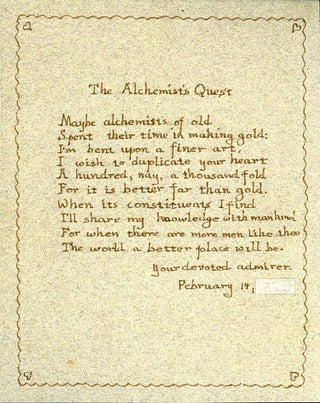 The Alchemist's Quest
Maybe alchemists of old
Spent their time in making gold:
I'm bent upon a finer art,
I wish to duplicate your heart
A hundred, nay, a thousand fold
For it is better far than gold.
When its constituents I find
I'll share my knowledge with mankind
For when there are more men like thee
The world a better place will be.
Your devoted admirer.
February 14,